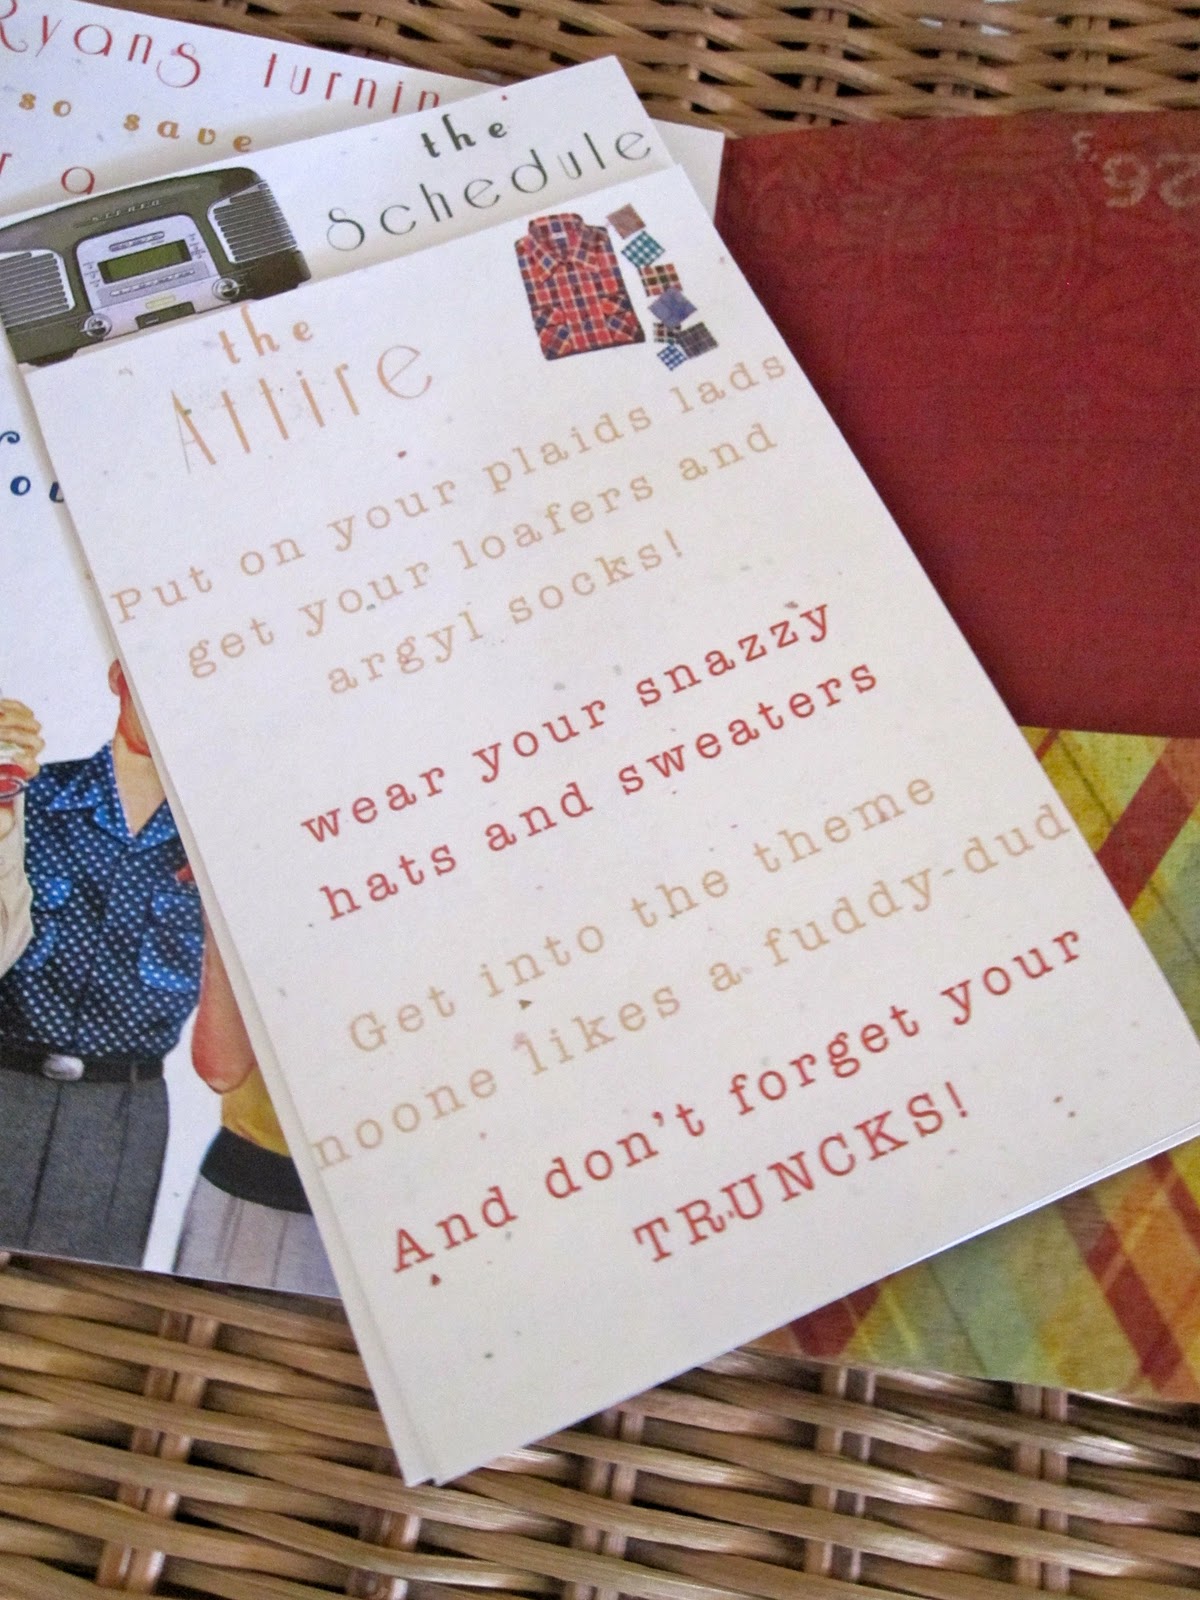 Ryans turnin
so save
a
the
Schedule
STEREO
the
Attire
Put on your plaids lads
get your loafers and
argyl socks!
wear your snazzy
hats and sweaters
Get into the theme
noone likes a fuddy-dud
And don't forget your
TRUNCKS!